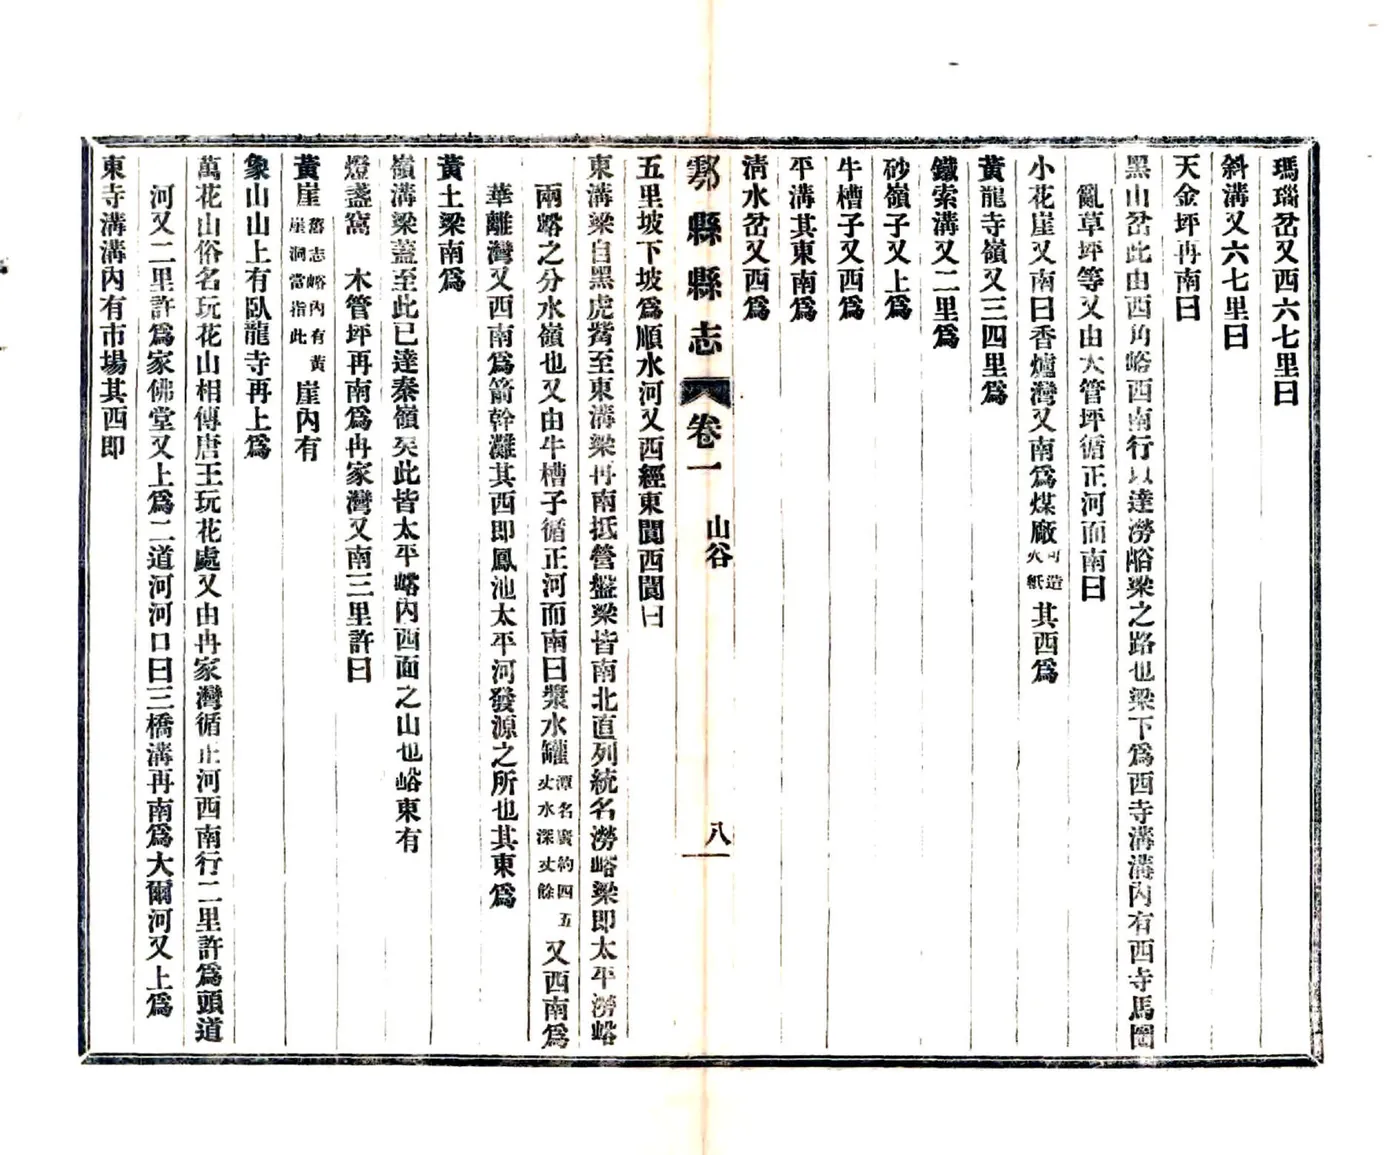 瑪瑙岔又西六七里曰
斜溝又六七里曰
天金坪再南曰
黑山岔此由西角峪西南行以達澇峪梁之路也梁下爲西寺溝溝內有西寺馬圈
亂草坪等又由大管坪循正河而南曰
小花崖又南曰香爐灣又南爲煤廠可造火紙其西爲
黃龍寺嶺又三四里爲
鐵索溝又二里爲
砂嶺子又上爲
牛槽子又西爲
平溝其東南爲
淸水岔又西爲
鄠縣縣志 卷一 山谷 八
五里坡下坡爲順水河又西經東閬西閬曰
東溝梁自黑虎嘴至東溝梁再南抵營盤梁皆南北直列統名澇峪梁即太平澇峪
兩峪之分水嶺也又由牛槽子循正河而南曰漿水罐潭名寬約四五丈水深丈餘又西南爲
華離灣又西南爲箭幹灘其西即鳳池太平河發源之所也其東爲
黃土梁南爲
嶺溝梁蓋至此已達秦嶺矣此皆太平峪內西面之山也峪東有
燈盞窩 木管坪再南爲冉家灣又南三里許曰
黃崖舊志峪內有黃崖洞當指此崖內有
象山山上有臥龍寺再上爲
萬花山俗名玩花山相傳唐王玩花處又由冉家灣循正河西南行二里許爲頭道
河又二里許爲家佛堂又上爲二道河河口曰三橋溝再南爲大爾河又上爲
東寺溝溝內有市場其西即